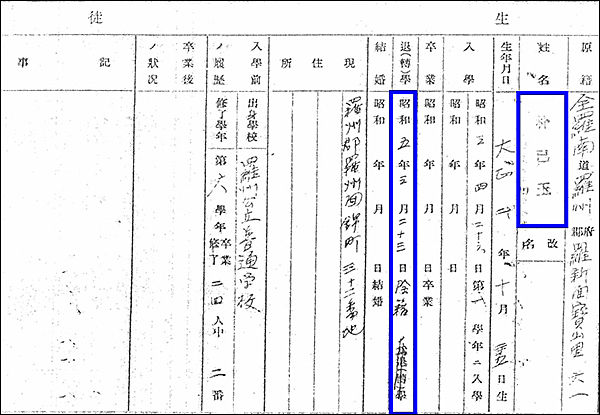 生徒
原籍 全羅南道羅州府郡 羅新面寶山里 六一
姓名 己玉 改名
生年月日 大正二年十月 日生
入學 昭和三年四月二十六日第一學年ニ入學
卒業 昭和 年 月 日卒業
退(轉)學 昭和五年三月二十三日
結婚 昭和 年 月 日結婚
現住所 羅州郡羅州面錦町三十二番地
入學前ノ履歷 出身學校 羅州公立普通学校
修了學年 第六學年卒業修了 二四人中 二番
卒業後ノ狀況
記事